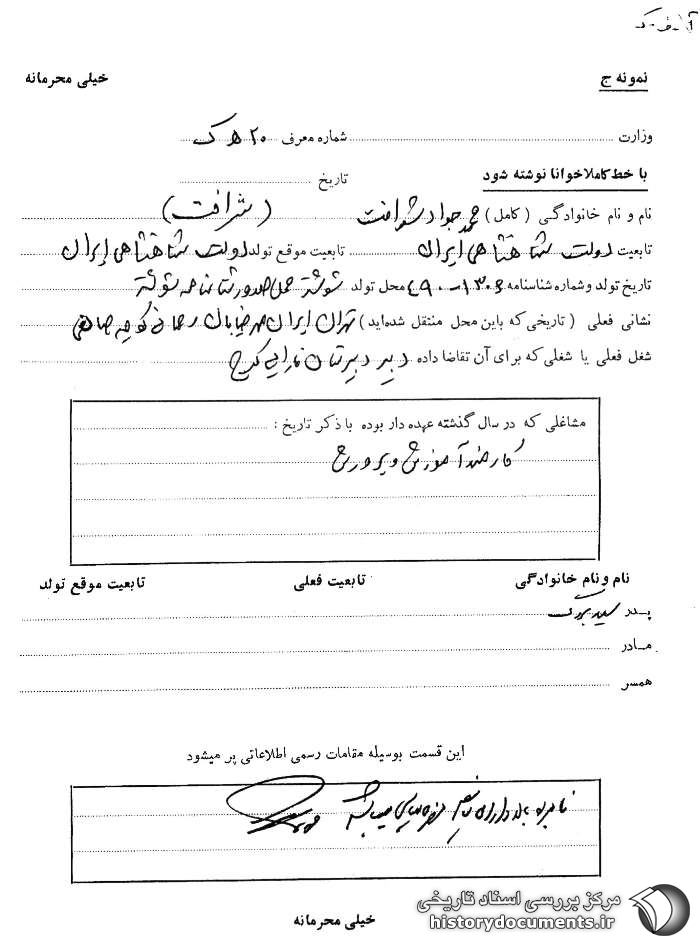 نمونه ج
خیلی محرمانه
وزارت
شماره معرف ۲۰ ه ک
با خط کاملا خوانا نوشته شود
تاریخ
نام و نام خانوادگی (کامل) محمد جواد شرافت (شرافت)
تابعیت دولت شاهنشاهی ایران تابعیت موقع تولد دولت شاهنشاهی ایران
تاریخ تولد و شماره شناسنامه ۱۳۰۶-۴۹۰ محل تولد شوشتر محل صدور شناسنامه شوشتر
نشانی فعلی (تاریخی که باین محل منتقل شده‌اید) تهران ایران مهر خیابان کوچه
شغل فعلی یا شغلی که برای آن تقاضا داده دبیر دبیرستان کرج
مشاغلی که در سال گذشته عهده دار بوده با ذکر تاریخ :
کارمند آموزش و پرورش
نام و نام خانوادگی تابعیت فعلی تابعیت موقع تولد
پدر سید
مادر
همسر
این قسمت بوسیله مقامات رسمی اطلاعاتی پر میشود
نامبرده میباشد
مرکز بررسی اسناد تاریخی
historydocuments.ir
خیلی محرمانه